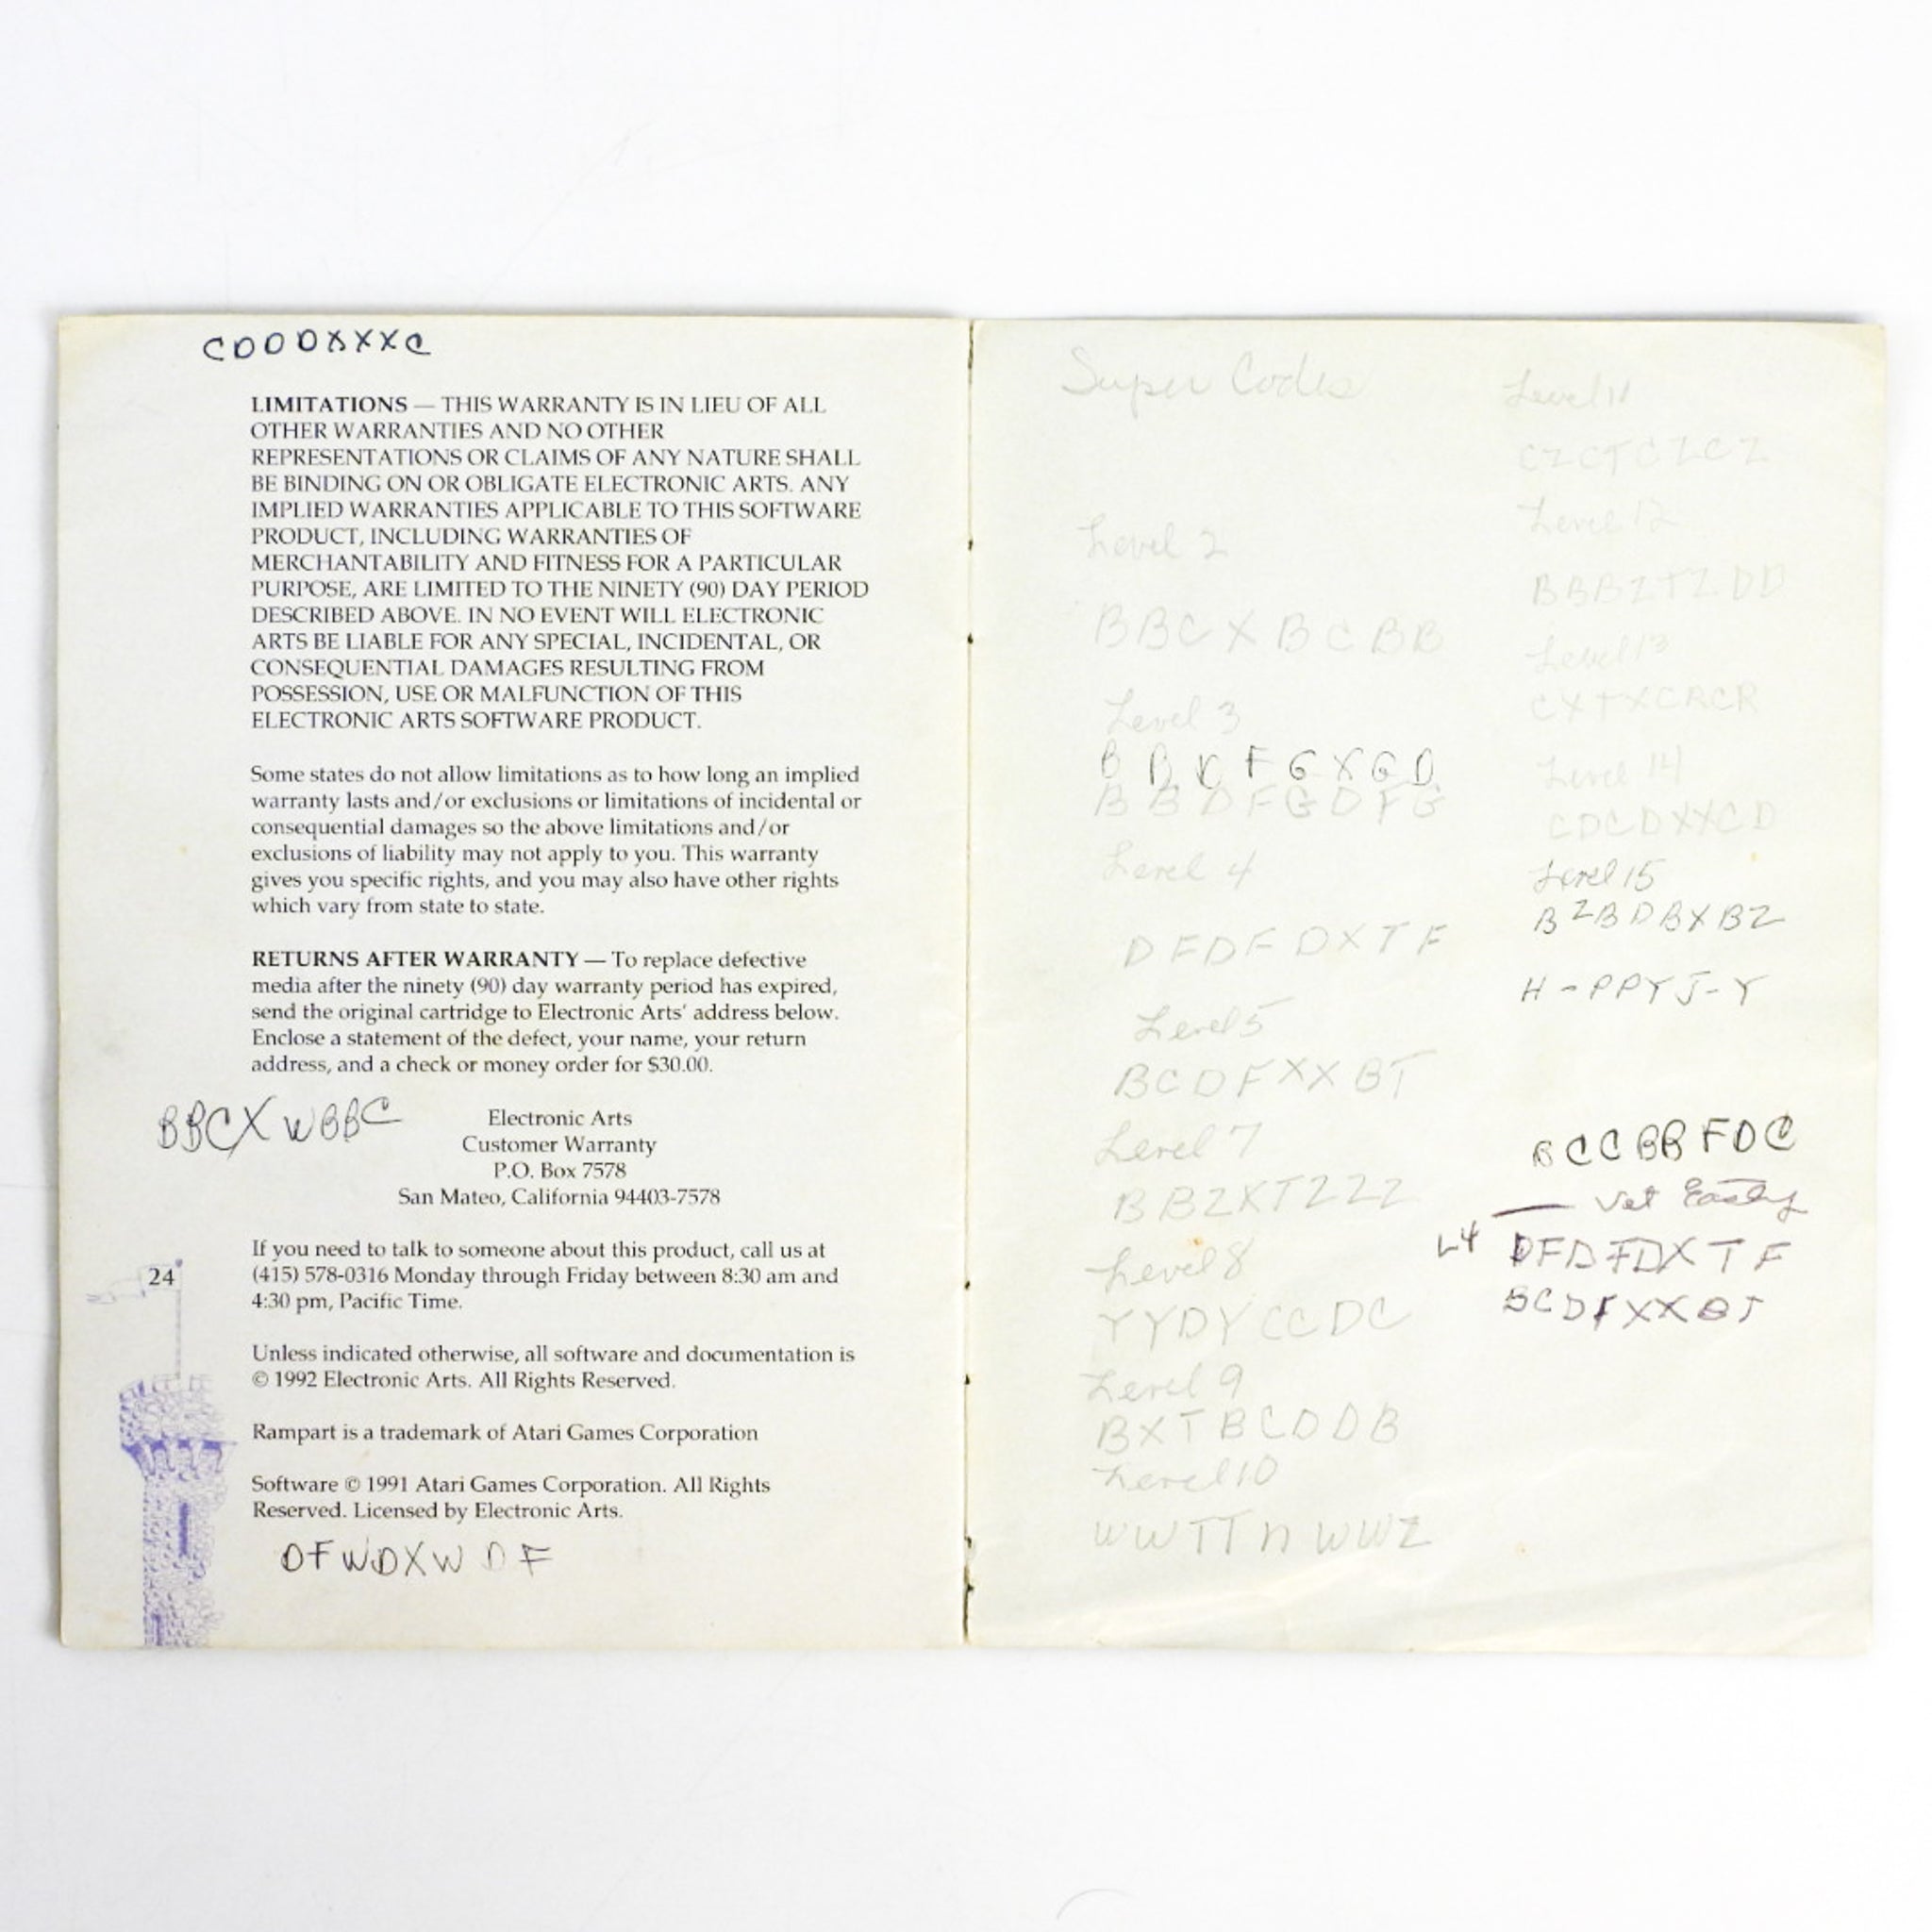 CDDDXXXC
LIMITATIONS — THIS WARRANTY IS IN LIEU OF ALL
OTHER WARRANTIES AND NO OTHER
REPRESENTATIONS OR CLAIMS OF ANY NATURE SHALL
BE BINDING ON OR OBLIGATE ELECTRONIC ARTS. ANY
IMPLIED WARRANTIES APPLICABLE TO THIS SOFTWARE
PRODUCT, INCLUDING WARRANTIES OF
MERCHANTABILITY AND FITNESS FOR A PARTICULAR
PURPOSE, ARE LIMITED TO THE NINETY (90) DAY PERIOD
DESCRIBED ABOVE. IN NO EVENT WILL ELECTRONIC
ARTS BE LIABLE FOR ANY SPECIAL, INCIDENTAL, OR
CONSEQUENTIAL DAMAGES RESULTING FROM
POSSESSION, USE OR MALFUNCTION OF THIS
ELECTRONIC ARTS SOFTWARE PRODUCT.
Some states do not allow limitations as to how long an implied
warranty lasts and/or exclusions or limitations of incidental or
consequential damages so the above limitations and/or
exclusions of liability may not apply to you. This warranty
gives you specific rights, and you may also have other rights
which vary from state to state.
RETURNS AFTER WARRANTY — To replace defective
media after the ninety (90) day warranty period has expired,
send the original cartridge to Electronic Arts' address below.
Enclose a statement of the defect, your name, your return
address, and a check or money order for $30.00.
BBCXWBBC
Electronic Arts
Customer Warranty
P.O. Box 7578
San Mateo, California 94403-7578
If you need to talk to someone about this product, call us at
(415) 578-0316 Monday through Friday between 8:30 am and
4:30 pm, Pacific Time.
24
Unless indicated otherwise, all software and documentation is
© 1992 Electronic Arts. All Rights Reserved.
Rampart is a trademark of Atari Games Corporation
Software © 1991 Atari Games Corporation. All Rights
Reserved. Licensed by Electronic Arts.
DFWDXWDF
Super Codes
Level 2
BBCXBCBB
Level 3
BBDFGDFG
Level 4
DFDFDXTF
Level 5
BCDFXXBT
Level 7
BBZXTZZZ
Level 8
YYDYCCDC
Level 9
BXTBCDDB
Level 10
Level 11
CZCTCZCZ
Level 12
BBBZTZDD
Level 13
CXTXCRCR
Level 14
CDCDXXCD
Level 15
BZBDBXBZ
H-PPYJ-Y
BCCBBFDC
L4 DFDFDXTF
BCDFXXBT